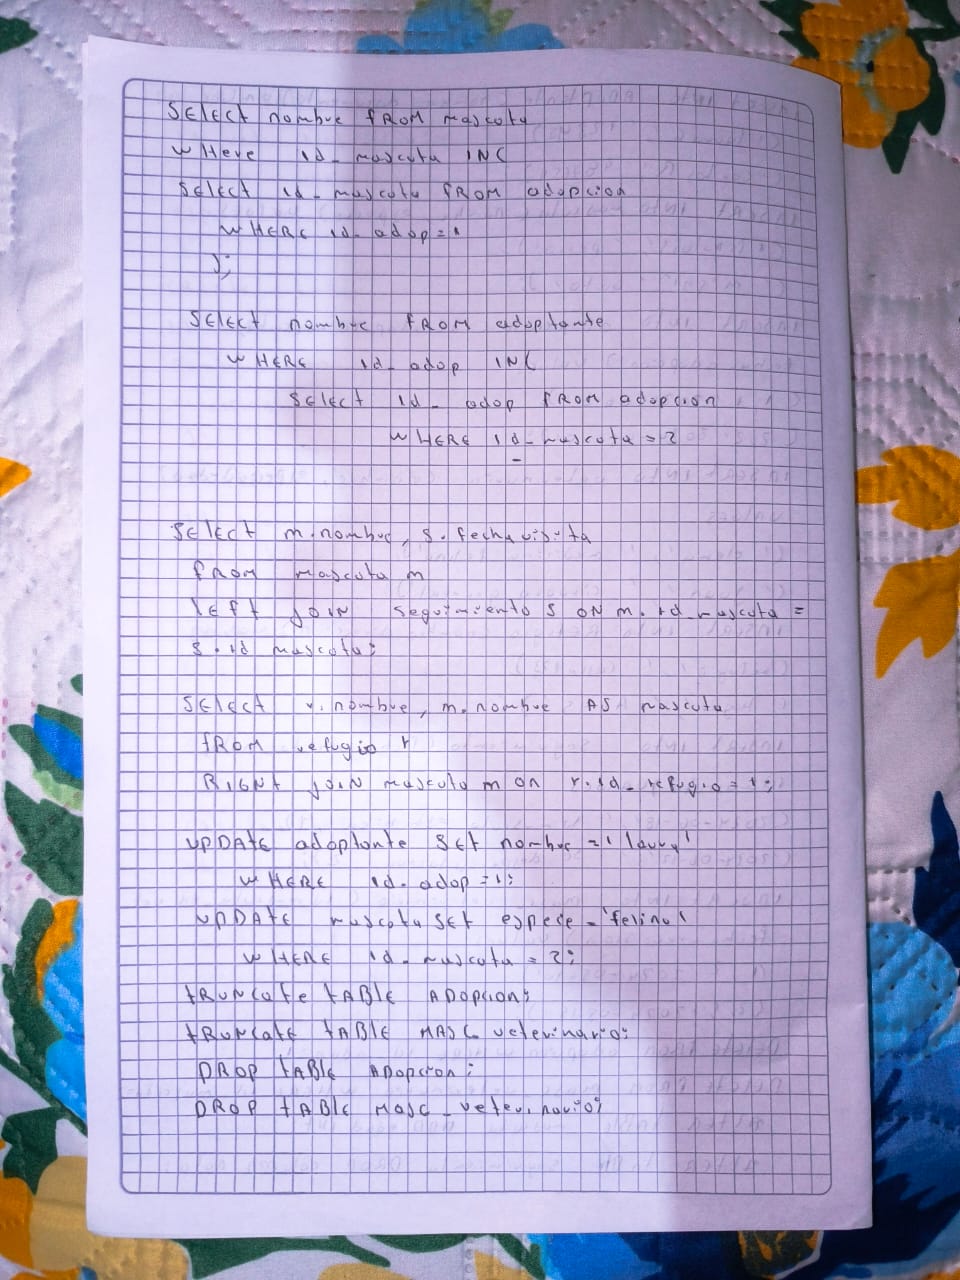 SELECT nombre FROM mascota
WHERE id_mascota IN(
SELECT id_mascota FROM adopcion
WHERE id_adop=1
);
SELECT nombre FROM adoptante
WHERE id_adop IN(
SELECT id_adop FROM adopcion
WHERE id_mascota = 2
SELECT m.nombre, s.fecha visita
FROM mascota m
LEFT JOIN seguimiento s ON m.id_mascota =
s.id mascota;
SELECT r.nombre, m.nombre AS mascota
FROM refugio r
RIGHT JOIN mascota m on r.id_refugio = 1;
UPDATE adoptante SET nombre = 'laura'
WHERE id_adop = 1;
UPDATE mascota SET especie = 'felino'
WHERE id_mascota = 2;
TRUNCATE TABLE ADOPCION;
TRUNCATE TABLE MASC_veterinario;
DROP TABLE ADOPCION;
DROP TABLE MASC_veterinario;